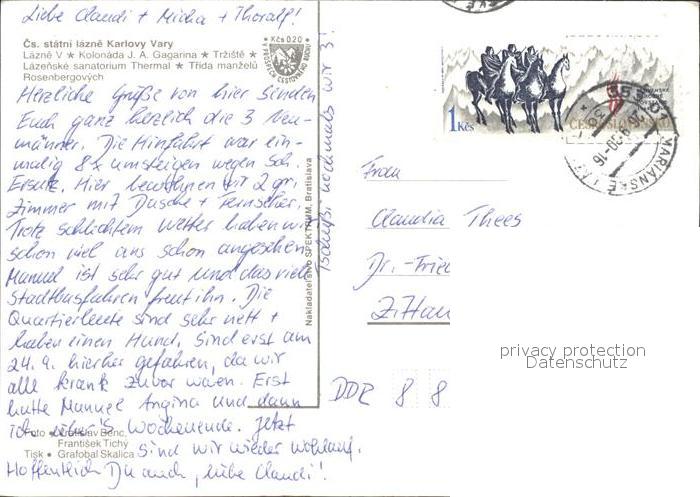 Liebe Claudi + Micha + Thoralf!
Čs. státní lázně Karlovy Vary
Lázně V ★ Kolonáda J. A. Gagarina ★ Tržiště ★
Lázeňské sanatorium Thermal ★ Třída manželů
Rosenbergových
Kčs 020
Herzliche Grüße von hier senden
Euch ganz herzlich die 3
männer. Die Hinfahrt war ein-
malig 8x umsteigen wegen Sch.
Ersatz. Hier bewohnen wir 2 gr.
Zimmer mit Dusche + Fernseher.
Trotz schlechtem Wetter haben wir
schon viel uns schon angesehen.
Manuel ist sehr gut und das viele
Stadtbusfahren freut ihn. Die
Quartierleute sind sehr nett +
haben einen Hund. Sind erst am
24.9. hierher gefahren, da wir
alle krank zuvor waren. Erst
hatte Manuel Angina und dann
ich über's Wochenende. Jetzt
sind wir wieder wohlauf.
Hoffentlich Du auch, liebe Claudi!
Tschüß! nochmals wir 3!
Foto • Vratislav Benc,
František Tichý
Tisk • Grafobal Skalica
Nakladateľstvo SPEKTRUM, Bratislava
1 Kčs
ČESKOSLOVENSKO
MARIÁNSKÉ LÁZ
Frau
Claudia Thees
Dr.-Frie
Z.Hau
DDR 8 8
privacy protection
Datenschutz